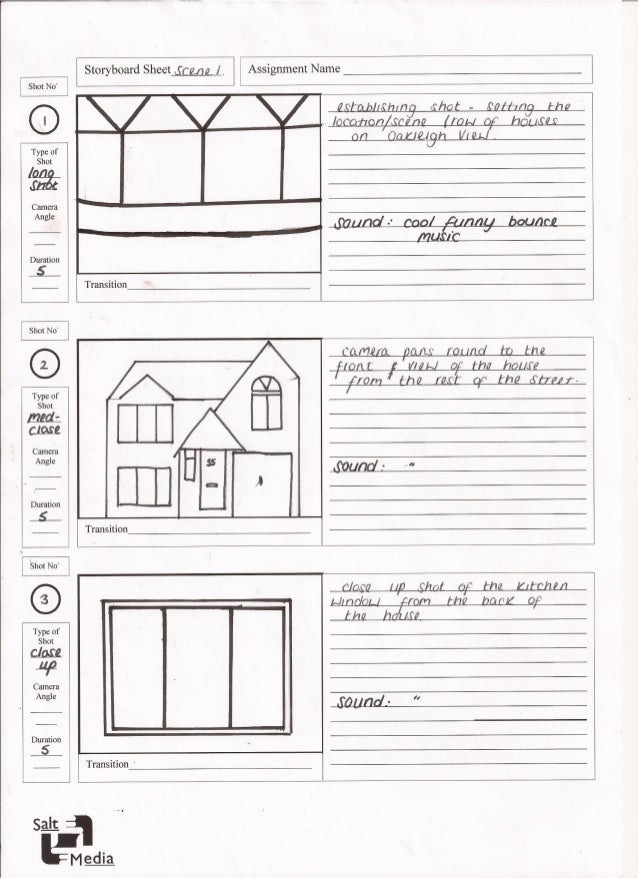 Storyboard Sheet Scene 1.
Assignment Name
Shot No'
1
Type of
Shot
long
shot
Camera
Angle
Duration
5
Transition
establishing shot - setting the
location/scene (row of houses
on Oakleigh View.
sound: cool funny bounce
music
Shot No'
2
Type of
Shot
med-
close
Camera
Angle
Duration
5
55
Transition
camera pans round to the
front & view of the house
from the rest of the street.
sound: "
Shot No'
3
Type of
Shot
close
up
Camera
Angle
Duration
5
Transition
close up shot of the kitchen
window from the back of
the house.
sound: "
Salt
Media